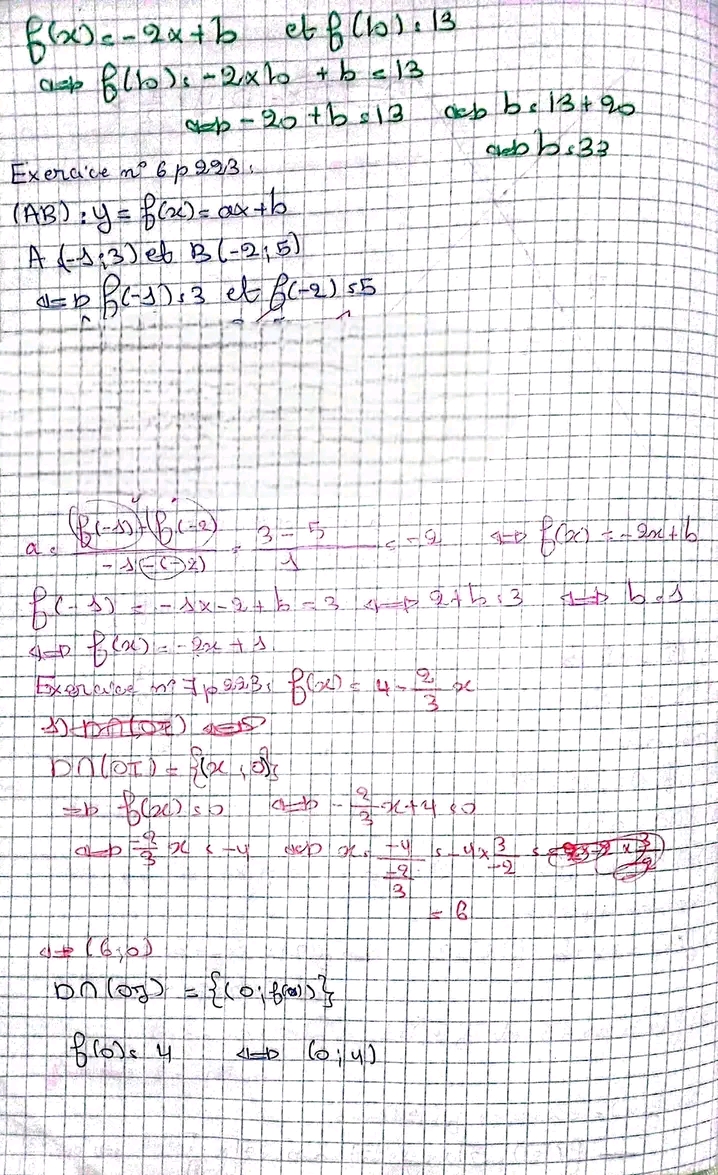 f(x) = -2x + b et f(10) = 13
<=> f(10) = -2x10 + b = 13
<=> -20 + b = 13 <=> b = 13 + 20
<=> b = 33
Exercice n° 6 p 223 :
(AB) : y = f(x) = ax + b
A (-1 ; 3) et B (-2 ; 5)
<=> f(-1) = 3 et f(-2) = 5
a = (f(-1) - f(-2)) / (-1 - (-2)) = (3 - 5) / 1 = -2 <=> f(x) = -2x + b
f(-1) = -1x-2 + b = 3 <=> 2 + b = 3 <=> b = 1
<=> f(x) = -2x + 1
Exercice n° 7 p 223 : f(x) = 4 - 2/3 x
1) D∩(OI)
D∩(OI) = {(x ; 0)}
=> f(x) = 0 <=> -2/3 x + 4 = 0
<=> -2/3 x = -4 <=> x = -4 / (-2/3) = -4 x 3/-2 =
= 6
<=> (6 ; 0)
D∩(OJ) = {(0 ; f(0))}
f(0) = 4 <=> (0 ; 4)